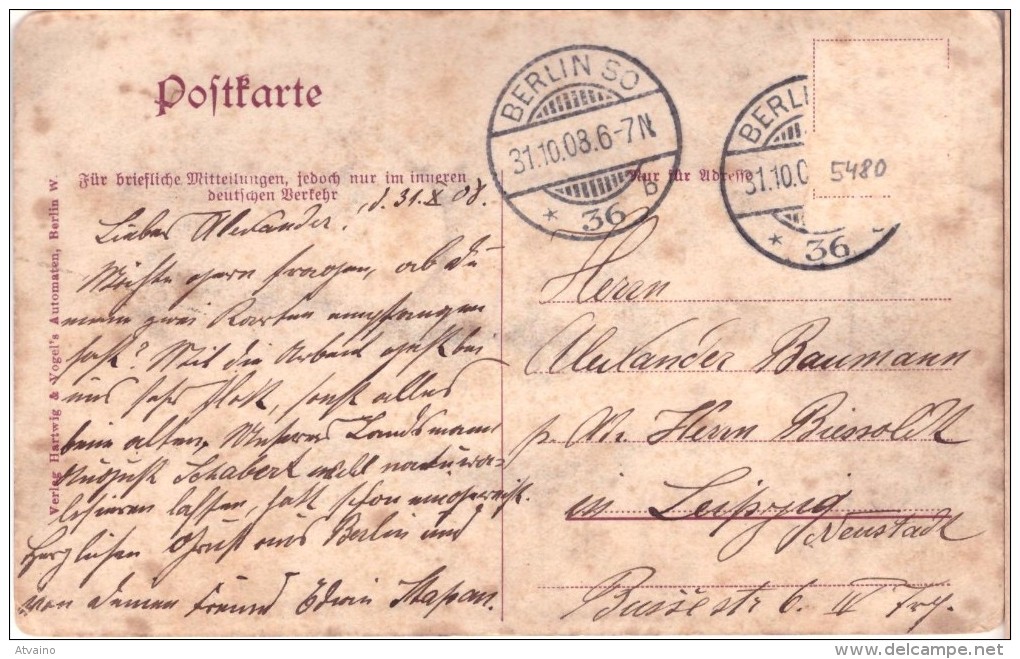 Postkarte
BERLIN SO
31.10.08.6-7N.
* 36 b
BERLI
31.10.0
* 36
5480
Für briefliche Mitteilungen, jedoch nur im inneren
deutschen Verkehr
Nur für Adresse
Verlag Hartwig & Vogel's Automaten, Berlin W.
d. 31.X 08.
Lieber Alexander.
Möchte gern fragen, ob du
meine zwei Karten empfangen
hast? Mit die Arbeit geht bei
uns sehr flott, sonst alles
beim alten, Unserer Landsmann
August Schabert will naturwa-
lisieren lassen, hatt schon eingereicht.
Herzlichen Gruß aus Berlin und
von deinen Freund Edwin
Herrn
Alexander Baumann
Herrn
in Leipzig
Neustadt
Bussestr 6. IV
Atvaino
www.delcampe.net